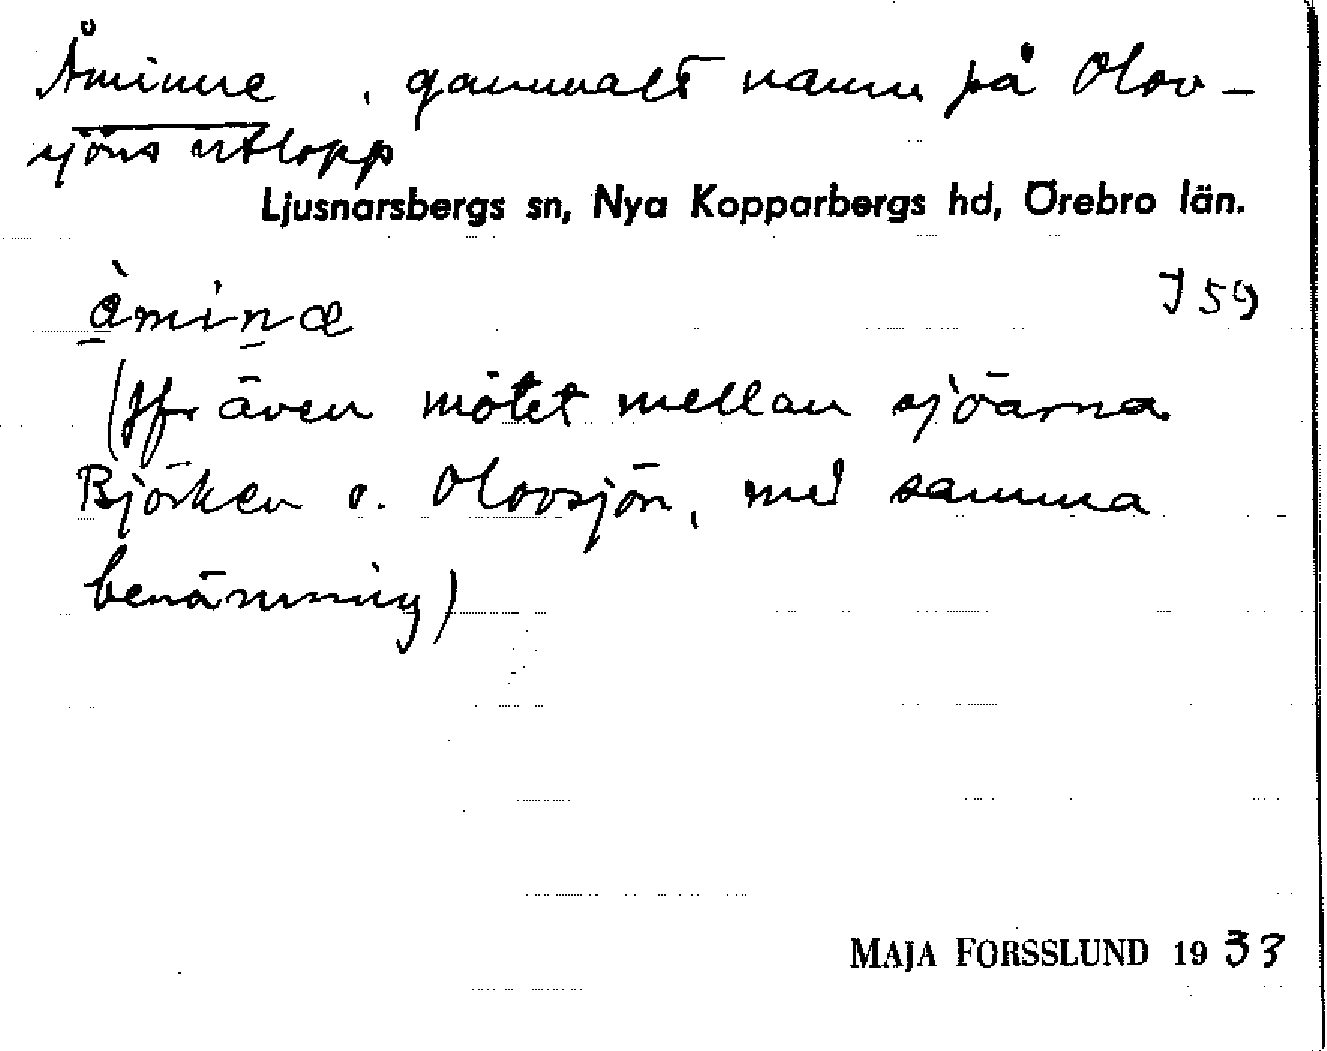 Åminne, gammalt namn på Olov-
sjöns utlopp
Ljusnarsbergs sn, Nya Kopparbergs hd, Örebro län.
åminæ
J 59
(Jfr även mötet mellan sjöarna
Björken o. Olovsjön, med samma
benämning)
MAJA FORSSLUND 1933